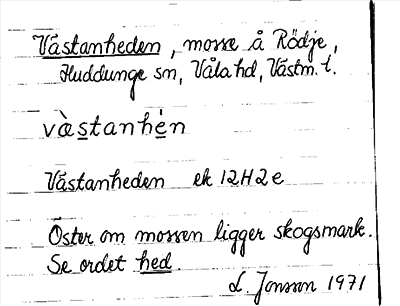 Västanheden, mosse å Rödje,
Huddunge sn, Våla hd, Västm. l.
væ̀stanhén
Västanheden ek 12H2e
Öster om mossen ligger skogsmark.
Se ordet hed.
L. Jonsson 1971